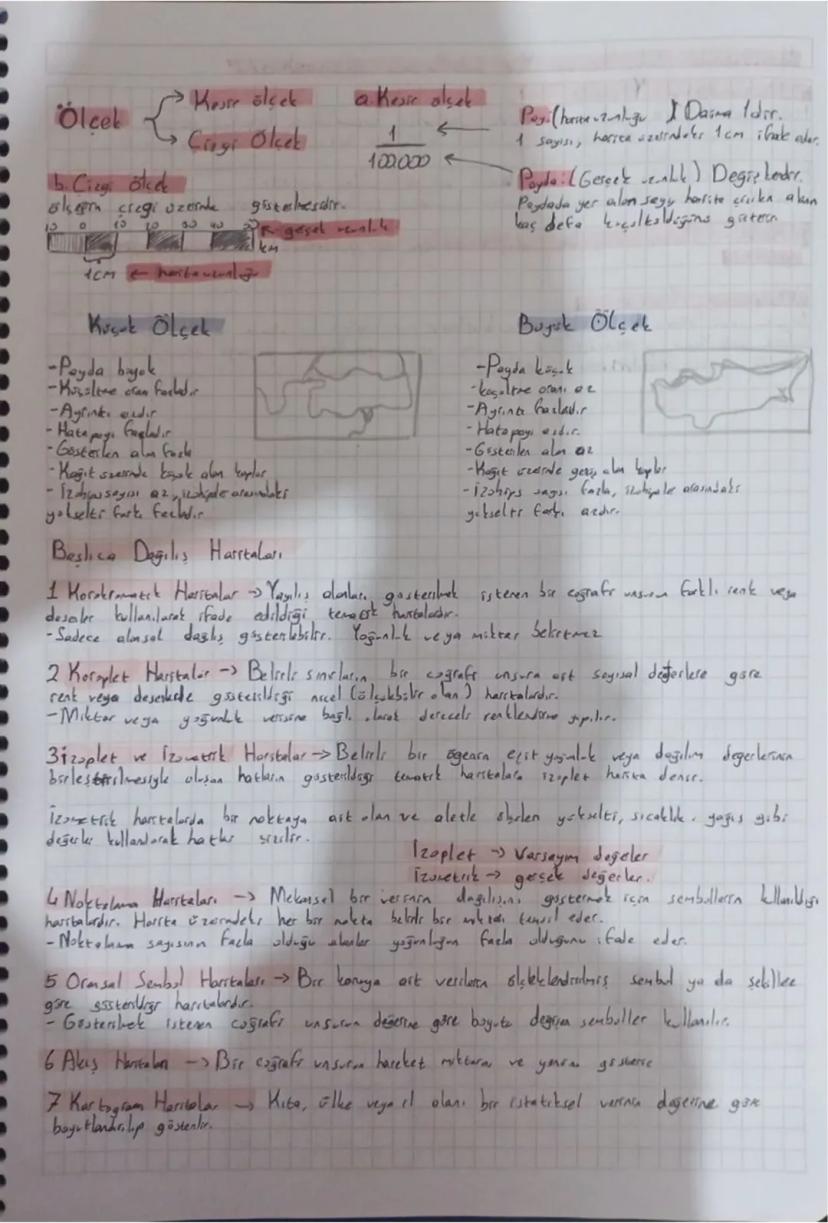 Ölçek
Kesir ölçek
Çizgi Ölçek
a. Kesir ölçek
1
100.000
Pay: (harita uzunluğu) Daima 1dir.
1 sayısı, harita üzerindeki 1cm ifade eder.
Payda: (Gerçek uzunluk) Değişkendir.
Paydada yer alan sayı harita çizilen alan
kaç defa küçültüldüğünü gösterir
b. Çizgi ölçek
ölçeğin çizgi üzerinde gösterilmesidir.
10 0 10 20 30 40 50
km
gerçek uzunluk
1cm ← harita uzunluğu
Küçük Ölçek
- Payda büyük
- Küçültme oranı fazladır
- Ayrıntı azdır
- Hata payı fazladır
- Gösterilen alan fazla
- Kağıt üzerinde küçük alan kaplar
- İzohips sayısı az, izohipsler arasındaki
yükselti farkı fazladır
Büyük Ölçek
- Payda küçük
- küçültme oranı az
- Ayrıntı fazladır
- Hata payı azdır.
- Gösterilen alan az
- Kağıt üzerinde geniş alan kaplar
- izohips sayısı fazla, izohipsler arasındaki
yükselti farkı azdır.
Başlıca Dağılış Haritaları
1 Korokromatik Haritalar → Yayılış alanları gösterilmek istenen bir coğrafi unsurun farklı renk veya
desenler kullanılarak ifade edildiği tematik haritalardır.
- Sadece alansal dağılış gösterilebilir. Yoğunluk veya miktar belirtmez
2 Koroplet Haritalar → Belirli sınırların bir coğrafi unsura ait sayısal değerlere göre
renk veya desenlerle gösterildiği nicel (ölçülebilir olan) haritalardır.
- Miktar veya yoğunluk verisine bağlı olarak dereceli renklendirme yapılır.
3 izoplet ve İzometrik Haritalar → Belirli bir ögenin eşit yoğunluk veya dağılım değerlerinin
birleştirilmesiyle oluşan hatların gösterildiği tematik haritalara izoplet harita denir.
İzometrik haritalarda bir noktaya ait olan ve aletle ölçülen yükselti, sıcaklık, yağış gibi
değerler kullanılarak hatlar çizilir.
İzoplet → Varsayım değeler
İzometrik → gerçek değerler.
4 Noktalama Haritaları → Mekansal bir verinin dağılışını göstermek için sembollerin kullanıldığı
haritalardır. Harita üzerindeki her bir nokta belirli bir miktarı temsil eder.
- Noktalama sayısının fazla olduğu alanlar yoğunluğun fazla olduğunu ifade eder.
5 Oransal Sembol Haritaları → Bir konuya ait verilerin ölçeklendirilmiş sembol ya da şekillere
göre gösterildiği haritalardır.
- Gösterilmek istenen coğrafi unsurun değerine göre boyutu değişen semboller kullanılır.
6 Akış Haritaları → Bir coğrafi unsurun hareket miktarını ve yönünü gösterir
7 Kartogram Haritalar → Kıta, ülke veya il alanı bir istatiksel verinin değerine göre
boyutlandırılıp gösterilir.